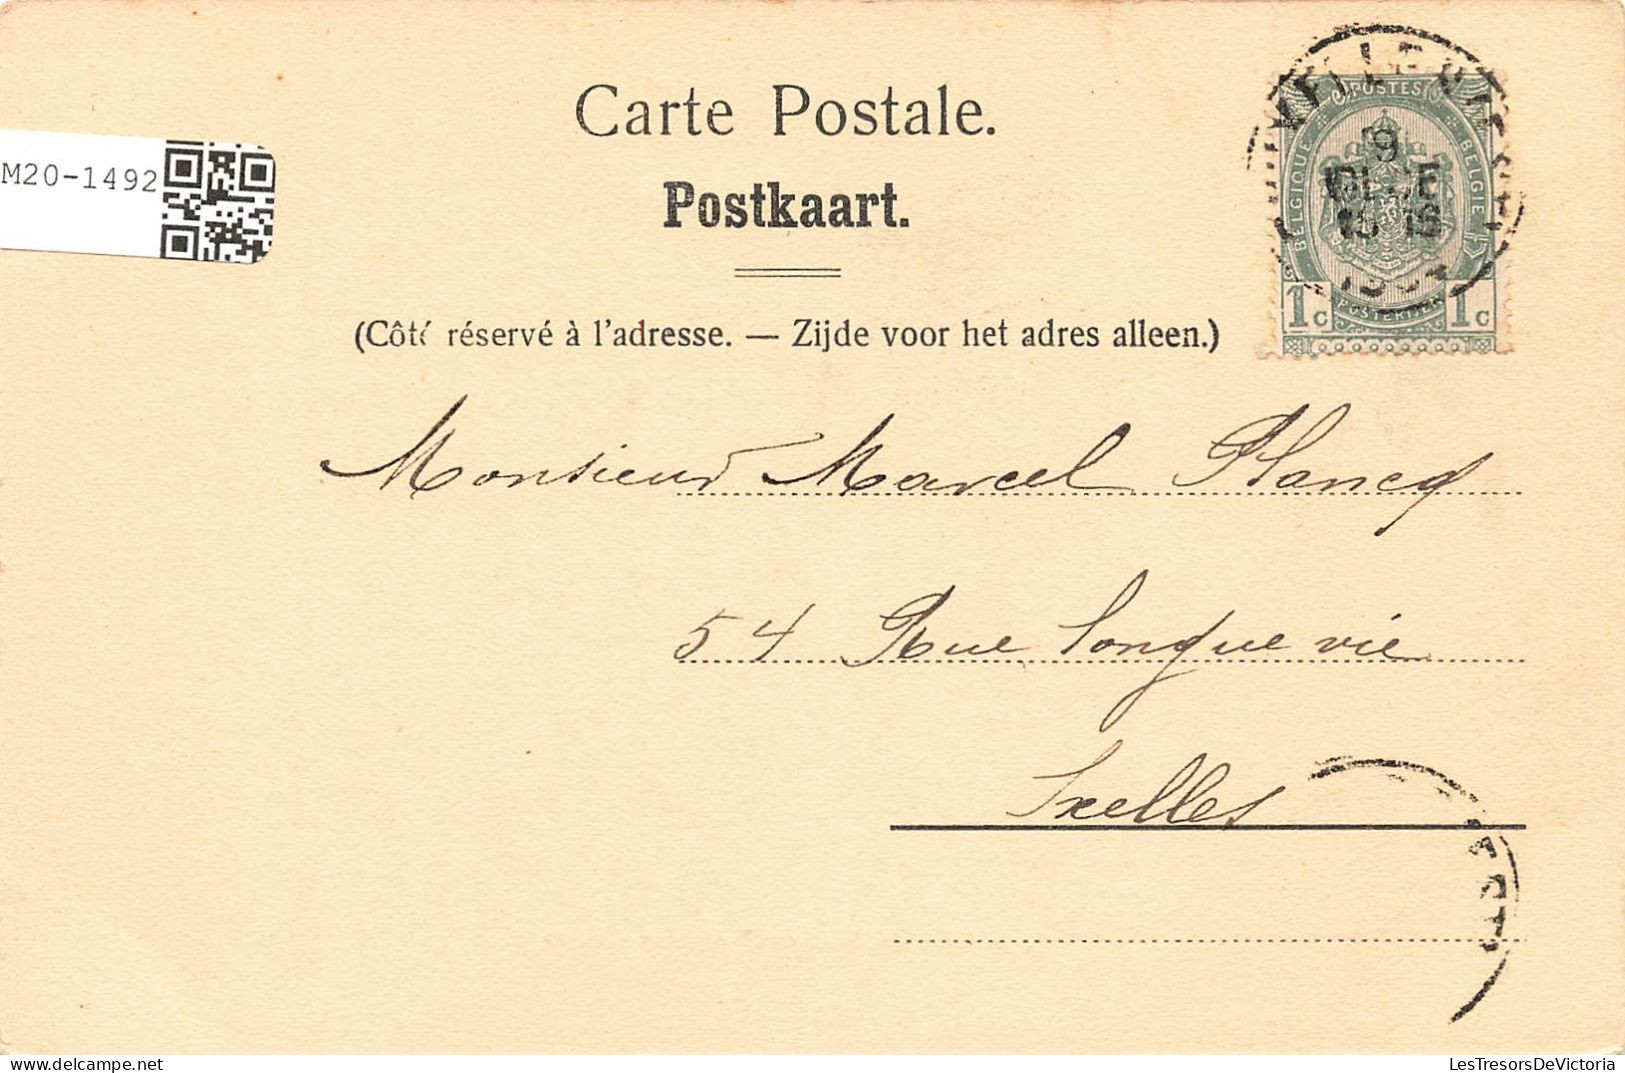 Carte Postale.
Postkaart.
M20-1492
(Côté réservé à l'adresse. — Zijde voor het adres alleen.)
POSTES
BELGIQUE
BELGIE
9
1c
POSTERIJEN
1c
Monsieur Marcel Plancq
54 Rue Longue vie
Ixelles
LesTresorsDeVictoria